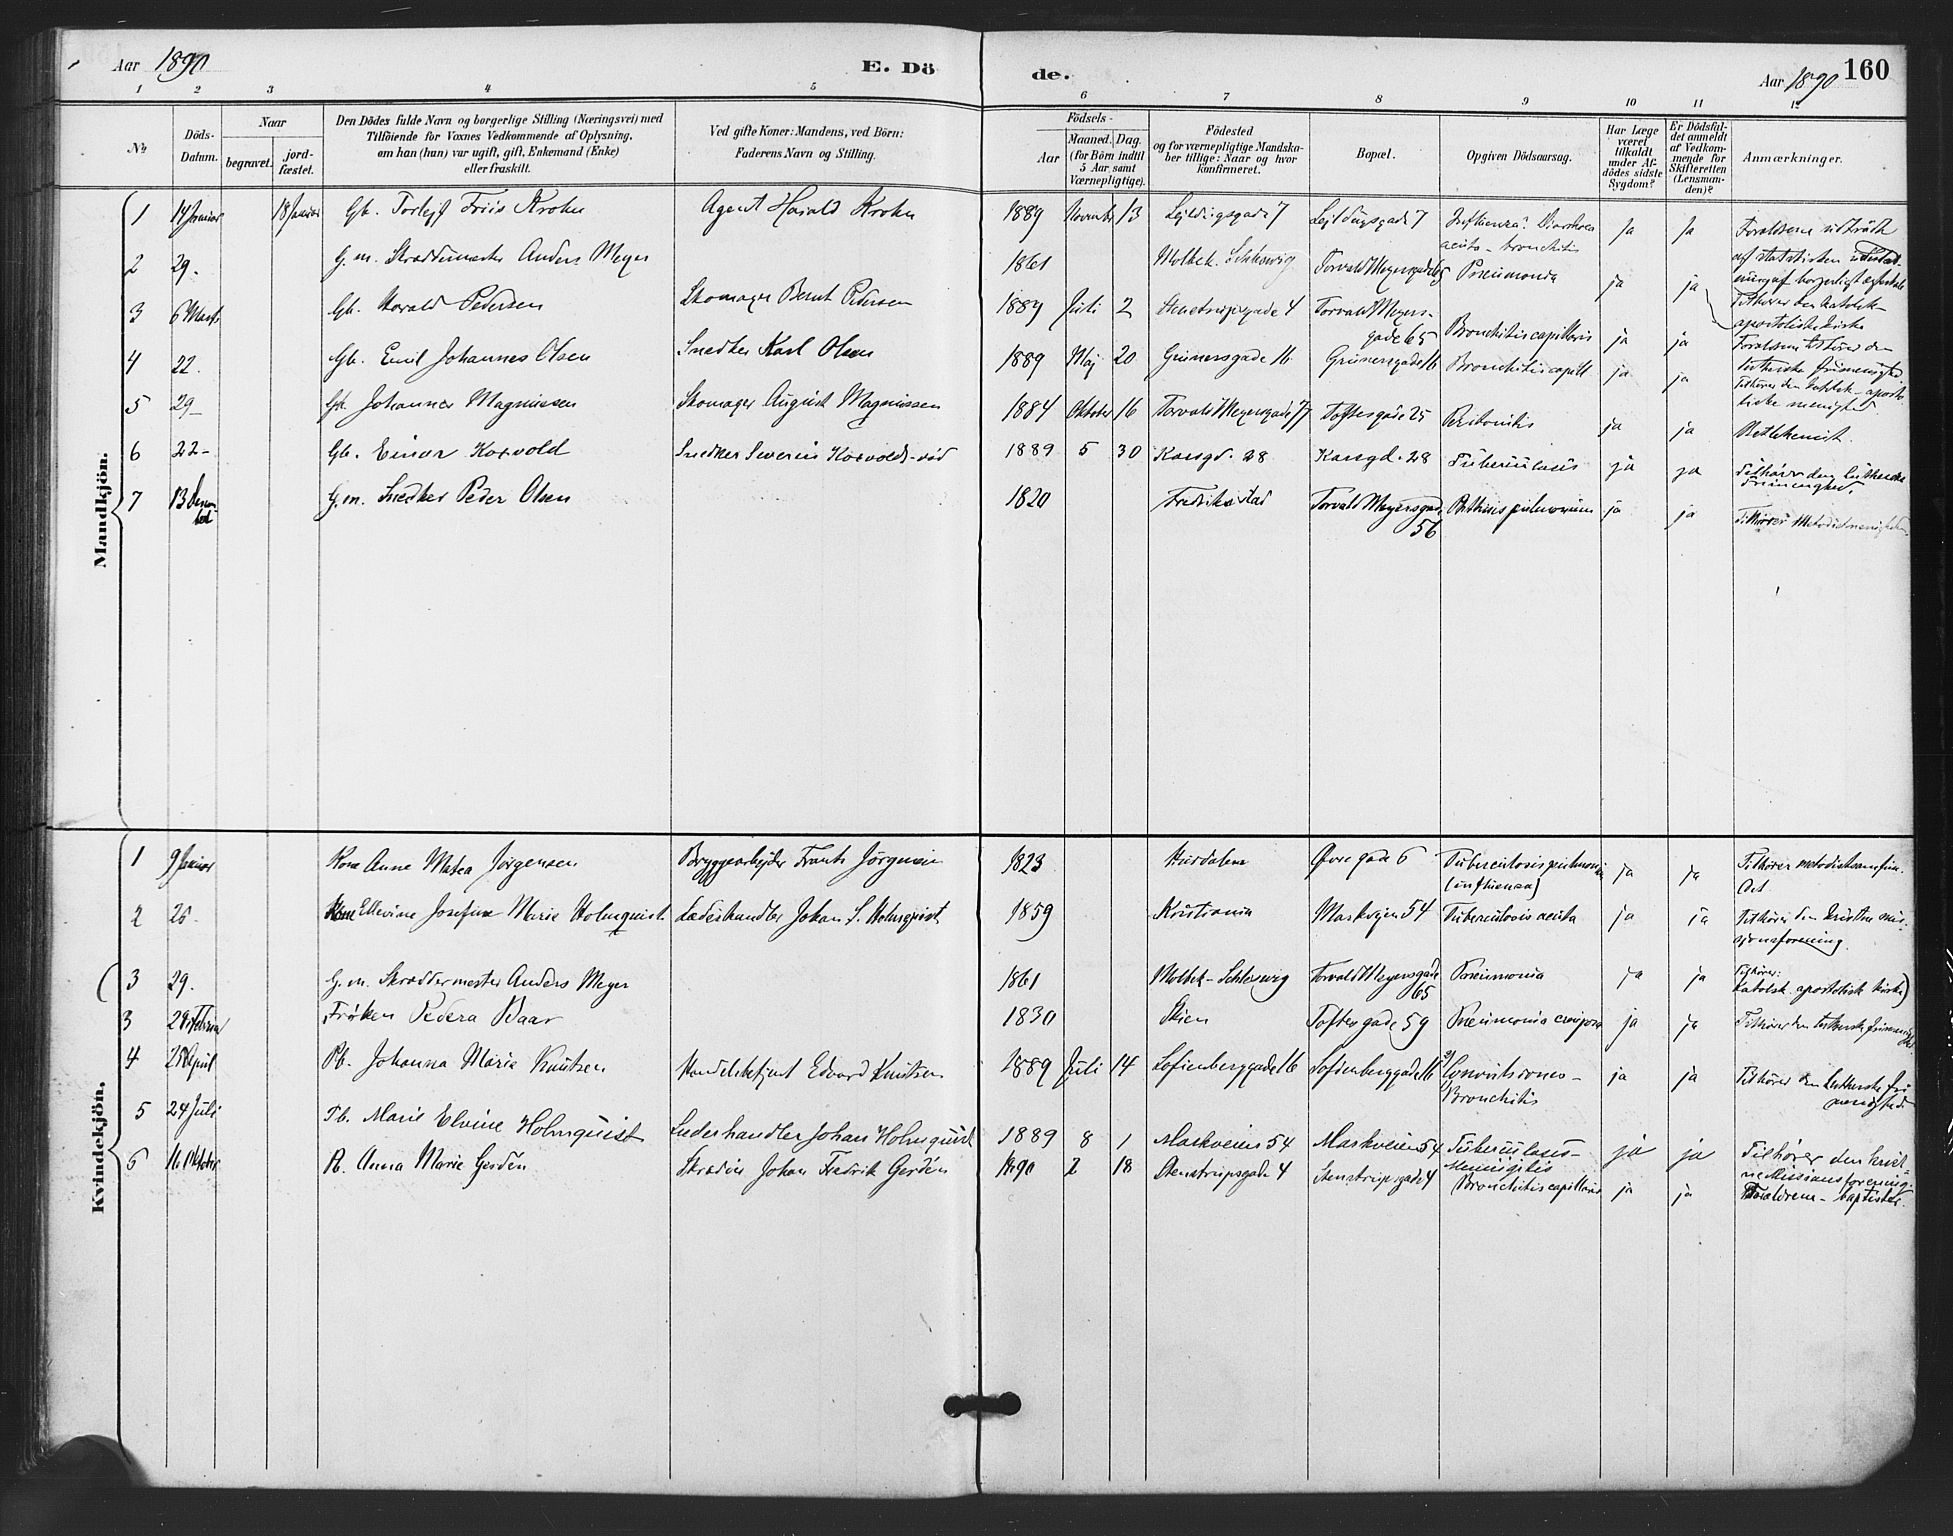 Aar 1890 E. Dö de. Aar 1890 160
1 2 3 4 5 6 7 8 9 10 11 12
No.
Döds-Datum.
Naar
begravet.
jordfæstet.
Den Dödes fulde Navn og borgerlige Stilling (Næringsvei) med
Tilföiende for Voxnes Vedkommende af Oplysning,
om han (hun) var ugift, gift, Enkemand (Enke)
eller fraskilt.
Ved gifte Koner: Mandens, ved Börn:
Faderens Navn og Stilling.
Födsels-
Aar
Maaned. Dag.
(for Börn indtil
5 Aar samt
Værnepligtige).
Födested
og for værnepligtige Mandska-
ber tillige: Naar og hvor
konfirmeret.
Bopæl.
Opgiven Dödsaarsag.
Har Læge
været
tilkaldt
under Af-
dödes sidste
Sygdom?
Er Dödsfal-
det anmeldt
af Vedkom-
mende for
Skifteretten
(Lensman-
den)?
Anmærkninger.
Mandkjön.
1 14 Januar 18 Januar Gb. Torleif Friis Krohn Agent Harald Krohn 1889 November 13 Lejldugsgade 7 Lejldugsgade 7 Influenza? Diarrhoea acuta - bronchitis ja ja Forældrene udtrådt af statskirken
2 29. G. m. Skræddermester Anders Meyer 1861 Molbek. Schleswig Torvald Meyersgade 65 Pneumonia ja ja Tilhører den katolsk-apostoliske kirke
3 6 Marts Gb. Harald Pedersen Skomager Bernt Pedersen 1889 Juli 2 Stenstrupsgade 4 Torvald Meyers-gade 65 Bronchitis capillaris ja ja Forældrene tilhører den lutherske frimenighed
4 22. Gb. Emil Johannes Olsen Snedker Karl Olsen 1889 Maj 20 Grünersgade 16. Grünersgade 16 Bronchitis capill ja ja Tilhører den katolsk-apostoliske menighed
5 29 Gb. Johannes Magnussen Skomager August Magnussen 1884 Oktober 16 Torvald Meyersgade 77 Toftesgade 25 Peritonitis ja ja
6 22- Gb. Einar Korvold Snedker Severin Korvolds-rød 1889 5 30 Korsgd. 28 Korsgd. 28 Tuberculosis ja ja Tilhører den lutherske Frimenighed.
7 13 G. m. Snedker Peder Olsen 1820 Fredrikstad Torvald Meyersgade 56 Phthisis pulmonum ja ja Tilhører Metodistmenigheden.
Kvindekjön.
1 9 Januar Kone Anne Matea Jørgensen Bryggearbejder Frants Jörgensen 1823 Hurdalen Øvre gade 6 Tuberculosis pulmonum (influenza) ja ja Tilhører metodistsamfundet
2 25. Kone Ellevine Josefine Marie Holmquist Læderhandler Johan S. Holmquist 1859 Kristiania Markvejen 54 Tuberculosis acuta ja ja Tilhører den kristne mis-sjonsforening.
(3 29. G. m. Skræddermester Anders Meyer 1861 Molbek - Schleswig Torvald Meyersgade 65 Pneumonia ja ja Tilhører: Katolsk. apostolisk kirke)
3 29 Februar Frøken Pedera Baar 1830 Skien Toftesgade 59 Pneumonia crouposa ja ja Tilhører den lutherske frimenighed
4 25 April Pb. Johanna Marie Knutsen Handelsbetjent Edvard Knutsen 1889 Juli 14 Sofienberggade 16 Sofienberggade 16 Convulsiones - Bronchitis ja ja Tilhører den lutherske fri menighed
5 24 Juli Pb. Marie Elvine Holmquist Læderhandler Johan Holmquist 1889 8 1 Markveien 54 Markveien 54 Tuberculosis - Meningitis ja ja Tilhører den krist-ne Missionsforening.
6 11. Oktober Pb. Anna Marie Gerdén Skrædder Johan Fredrik Gerdén 1890 2 18 Stenstrupsgade 4 Stenstrupsgade 4 Bronchitis capillaris ja ja Forældrene - baptister.